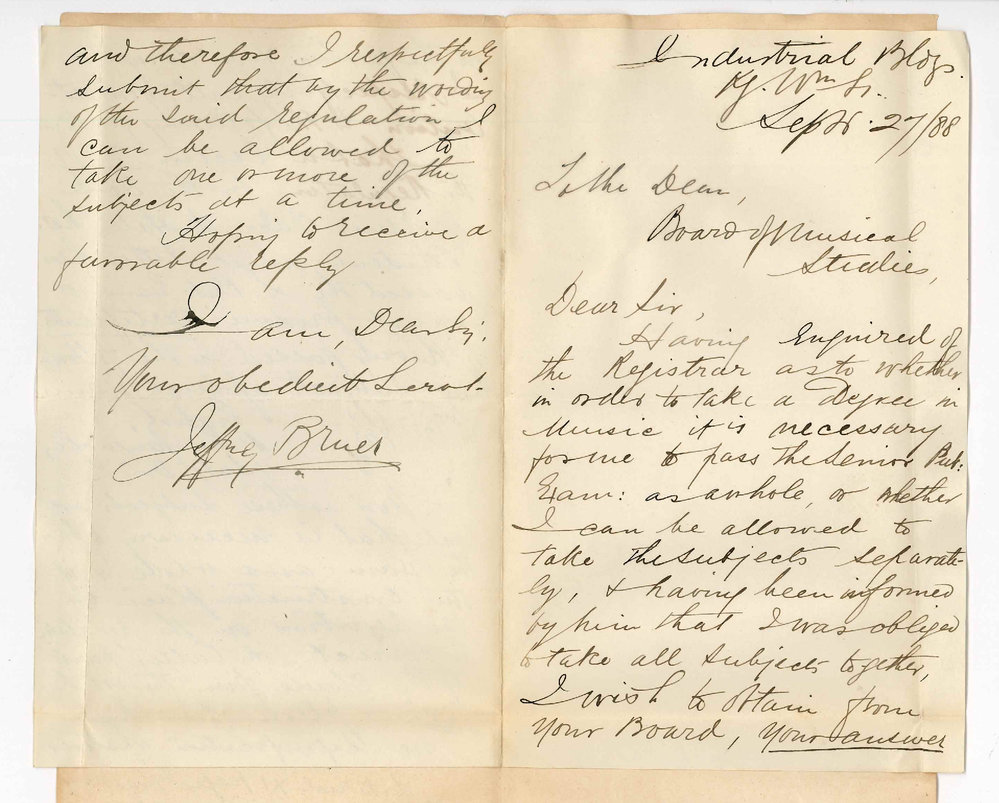 Industrial Bldgs.
Kg. Wm St.
Septr. 27/88
To the Dean,
Board of Musical
Studies,
Dear Sir,
Having Enquired of
the Registrar as to whether
in order to take a Degree in
Music it is necessary
for me to pass the Senior Pub:
Exam: as a whole, or whether
I can be allowed to
take the subjects separate-
ly, & having been informed
by him that I was obliged
to take all subjects together,
I wish to obtain from
Your Board, Your answer
and therefore I respectfully
submit that by the wording
of the said regulation I
can be allowed to
take one or more of the
subjects at a time.
Hoping to receive a
favorable reply
I am, Dear Sir,
Your obedient Servt.
Jeffrey Bruer